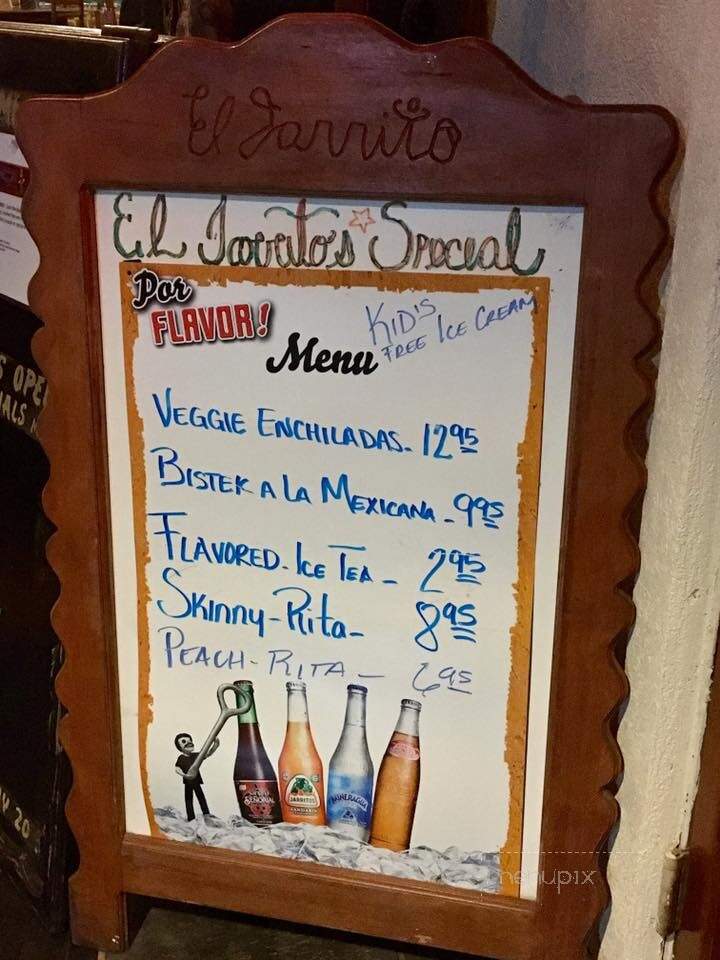 El Jarrito
El Jarrito's Special
Por
FLAVOR!
Menu
KID'S
FREE ICE CREAM
VEGGIE ENCHILADAS - 12 95
BISTEK A LA MEXICANA - 9 95
FLAVORED - ICE TEA - 2 95
SKINNY - Rita - 8 95
PEACH - RITA - 6 95
SEÑORIAL
JARRITOS
MANDARIN
MINERAGUA
OPE
ALS
20
menupix